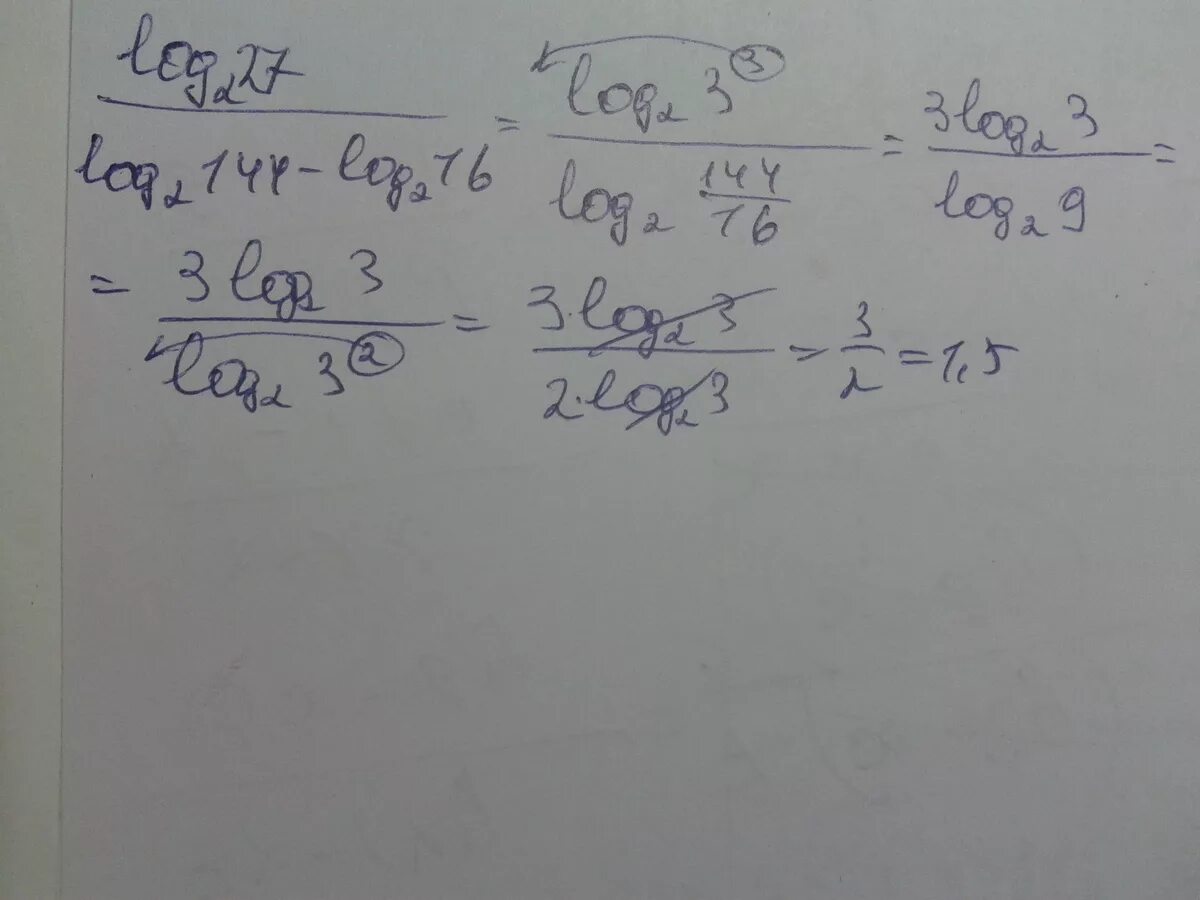 log₂27 / (log₂144 - log₂16) = log₂3³ / log₂(144/16) = 3log₂3 / log₂9 =
= 3log₂3 / log₂3² = 3·log₂3 / 2·log₂3 = 3/2 = 1,5